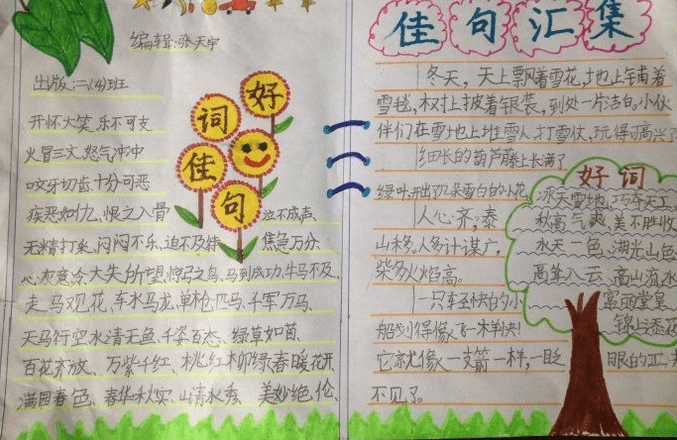 编辑:张天宇
出版:二(4)班
好
词
佳
句
开怀大笑、乐不可支
火冒三丈、怒气冲冲
咬牙切齿、十分可恶
疾恶如仇、恨之入骨
泣不成声、
无精打采、闷闷不乐、迫不及待
焦急万分、
心灰意冷、大失所望、惊弓之鸟、马到成功、牛马不及、
走马观花、车水马龙、单枪匹马、千军万马、
天马行空、水清无鱼、千姿百态、绿草如茵、
百花齐放、万紫千红、桃红柳绿、春暖花开
满园春色、春华秋实、山清水秀、美妙绝伦、
佳句汇集
冬天,天上飘着雪花,地上铺着
雪毯,树上披着银装,到处一片洁白,小伙
伴们在雪地上堆雪人,打雪仗,玩得可高兴了
细长的葫芦藤上长满了
绿叶,开出了几朵雪白的小花
人心齐,泰
山移。人多计谋广,
柴多火焰高。
一只轻快的小
船划得像飞一样
它就像一支箭一样,一眨
眼的
不见了。
好词
冰天雪地、巧夺天工
秋高气爽、美不胜收
水天一色、湖光山色
高耸入云、高山流水
富丽堂皇
锦上添花